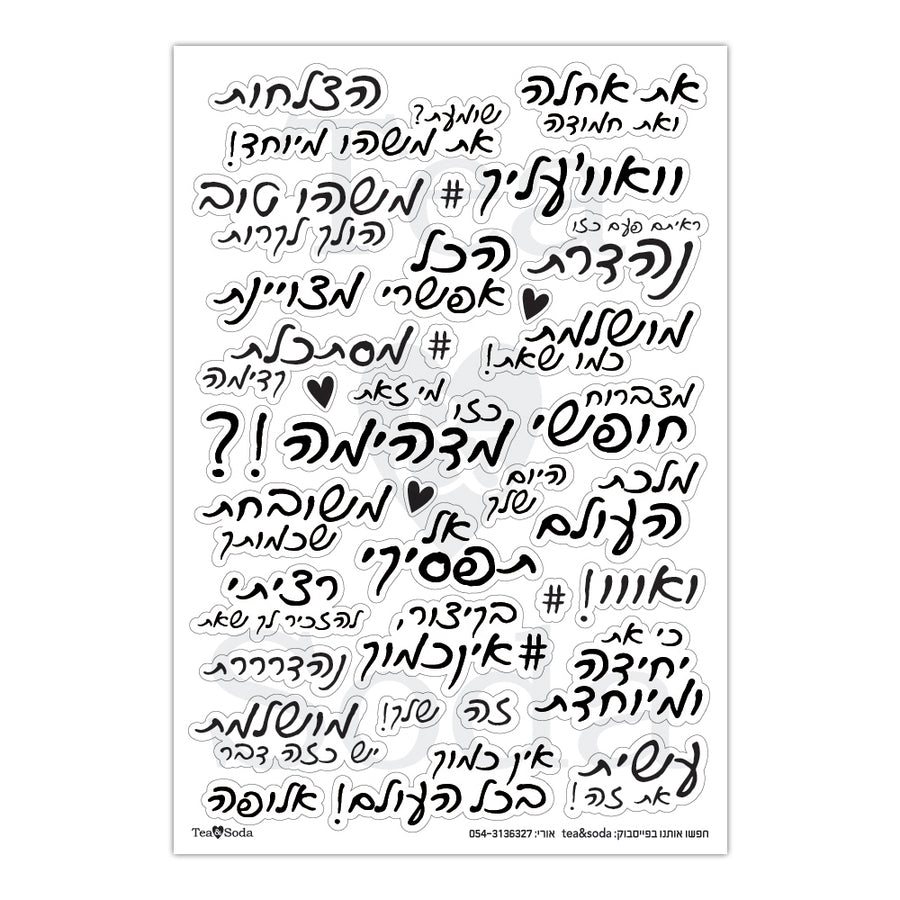 את אחלה
ואת חמודה
הצלחות
שומעת?
את משהו מיוחד!
#וואוו'עליך
משהו טוב
הולך לקרות
ראיתם פעם כזו
נהדרת
הכל
אפשרי
מצויינת
מושלמת
כמו שאת!
#מסתכלת
קדימה
מי זאת
כזו
מדהימה
!?
מצברוח
חופשי
מלכת
העולם
היום
שלך
משובחת
שכמותך
אל
תפסיקי
ואווו!
#
רציתי
להזכיר לך שאת
נהדרררת
בקיצור,
#אינכמוך
כי את
יחידה
ומיוחדת
זה שלך!
מושלמת
יש כזה דבר
עשית
את זה!
אין כמוך
בכל העולם!
אלופה
חפשו אותנו בפייסבוק: tea&soda אורי: 054-3136327
Tea&Soda
Tea
&
Soda